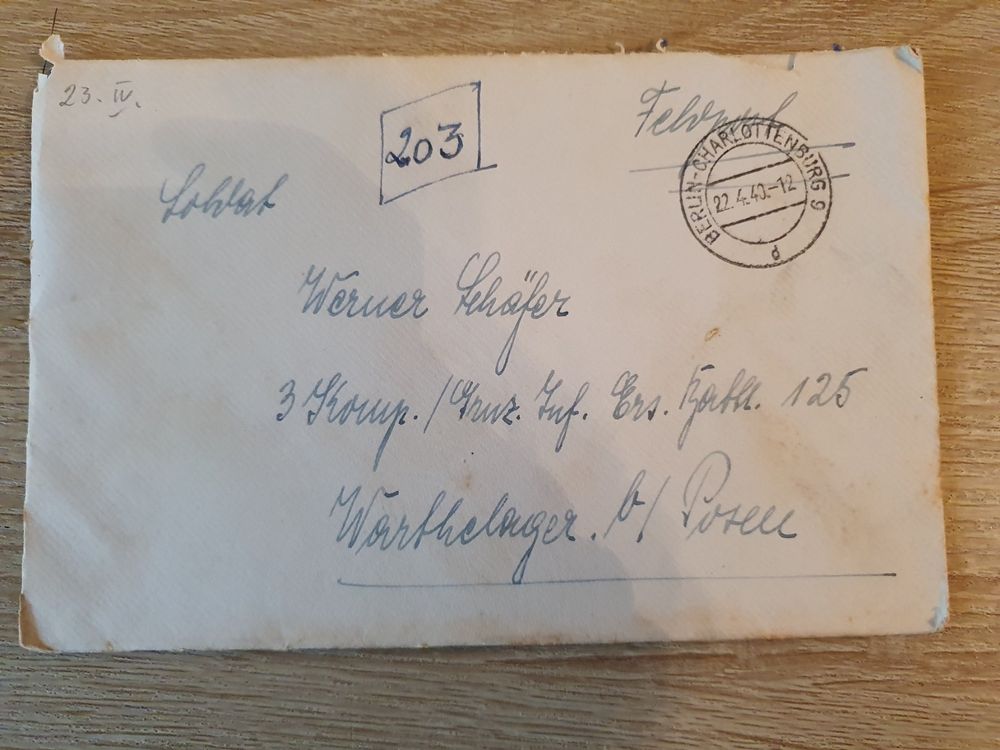 23. IV.
203
Feldpost
BERLIN-CHARLOTTENBURG 9
22.4.40.-12
d
Soldat
Werner Schäfer
3 Komp./Grnz. Inf. Ers. Batll. 125
Warthelager. b/ Posen